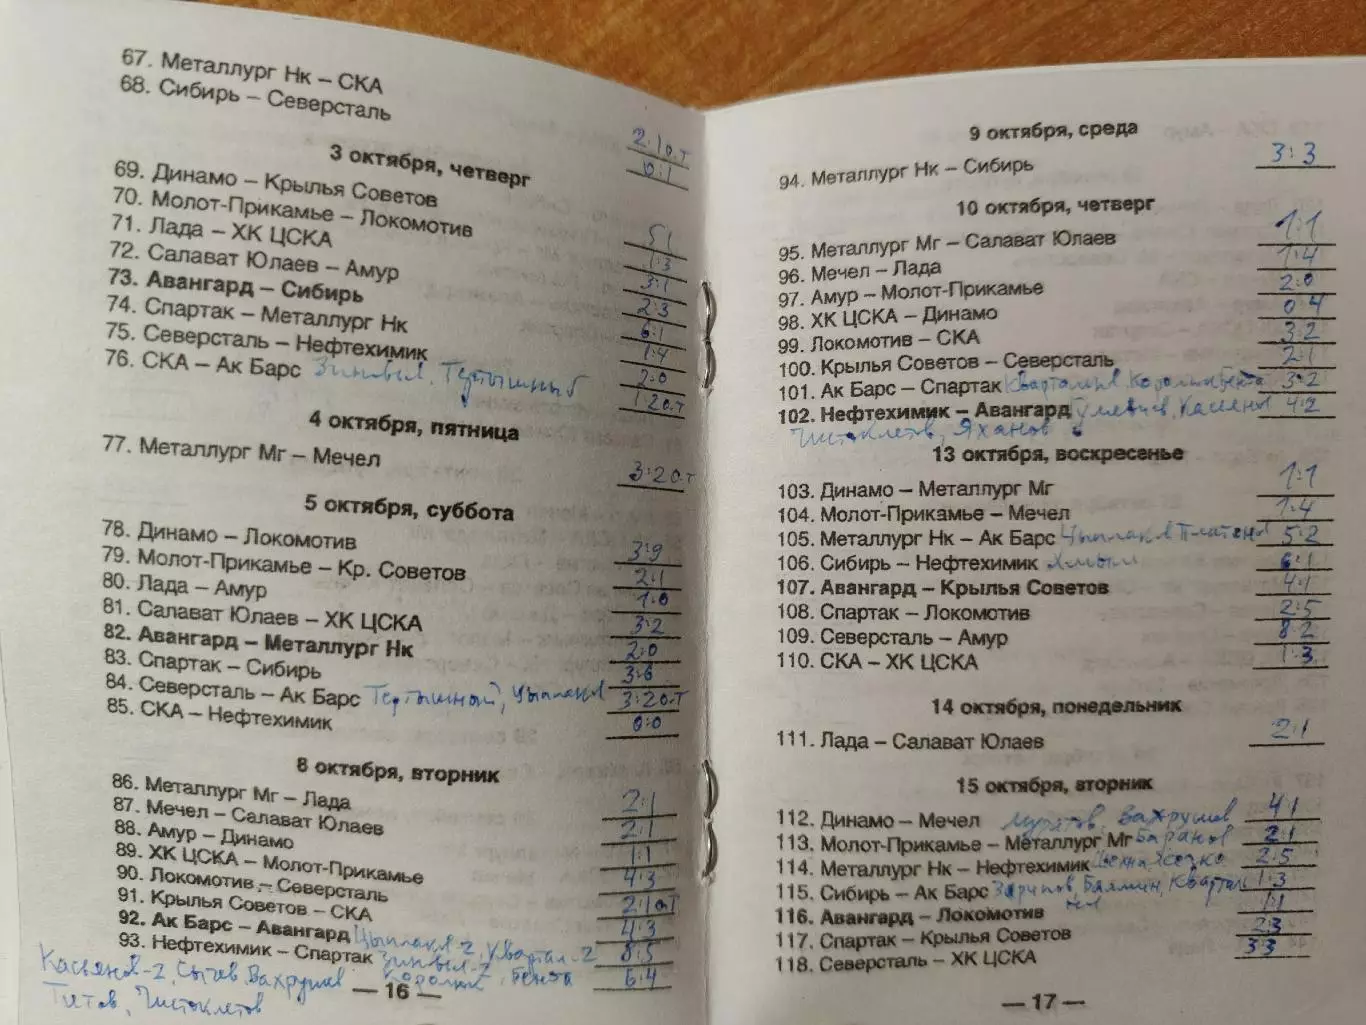 67. Металлург Нк – СКА 2:1 о.т
68. Сибирь – Северсталь 0:1
3 октября, четверг
69. Динамо – Крылья Советов 5:1
70. Молот-Прикамье – Локомотив 1:3
71. Лада – ХК ЦСКА 3:1
72. Салават Юлаев – Амур 2:3
73. Авангард – Сибирь 6:1
74. Спартак – Металлург Нк 1:4
75. Северсталь – Нефтехимик 2:0
76. СКА – Ак Барс Зиновьев, Тертышный 1:2 о.т
4 октября, пятница
77. Металлург Мг – Мечел 3:2 о.т
5 октября, суббота
78. Динамо – Локомотив 3:9
79. Молот-Прикамье – Кр. Советов 2:1
80. Лада – Амур 1:0
81. Салават Юлаев – ХК ЦСКА 3:2
82. Авангард – Металлург Нк 2:0
83. Спартак – Сибирь 3:6
84. Северсталь – Ак Барс Тертышный, Цыплаков 3:2 о.т
85. СКА – Нефтехимик 0:0
8 октября, вторник
86. Металлург Мг – Лада 2:1
87. Мечел – Салават Юлаев 2:1
88. Амур – Динамо 1:1
89. ХК ЦСКА – Молот-Прикамье 4:3
90. Локомотив – Северсталь 2:1 о.т
91. Крылья Советов – СКА 4:3
92. Ак Барс – Авангард Цыплаков-2, Квартал-2 8:5
93. Нефтехимик – Спартак Зиновьев-2 6:4
Касьянов-2, Сытов, Вахрушев Королюк, Бента
Титов, Чистоклетов
— 16 —
9 октября, среда
94. Металлург Нк – Сибирь 3:3
10 октября, четверг
95. Металлург Мг – Салават Юлаев 1:1
96. Мечел – Лада 1:4
97. Амур – Молот-Прикамье 2:0
98. ХК ЦСКА – Динамо 0:4
99. Локомотив – СКА 3:2
100. Крылья Советов – Северсталь 2:1
101. Ак Барс – Спартак Квартальнов, Королюк, Бента 3:2
102. Нефтехимик – Авангард Гулявцев, Касьянов 4:2
Чистоклетов, Яханов
13 октября, воскресенье
103. Динамо – Металлург Мг 1:1
104. Молот-Прикамье – Мечел 1:4
105. Металлург Нк – Ак Барс Цыплаков Платонов 5:2
106. Сибирь – Нефтехимик Хмыль 6:1
107. Авангард – Крылья Советов 4:1
108. Спартак – Локомотив 2:5
109. Северсталь – Амур 8:2
110. СКА – ХК ЦСКА 1:3
14 октября, понедельник
111. Лада – Салават Юлаев 2:1
15 октября, вторник
112. Динамо – Мечел 4:1
Муратов, Вахрушев
113. Молот-Прикамье – Металлург Мг Баранов 2:1
114. Металлург Нк – Нефтехимик 2:5
115. Сибирь – Ак Барс Зарипов, Балмин, Квартальнов 1:3
116. Авангард – Локомотив 1:1
117. Спартак – Крылья Советов 2:3
118. Северсталь – ХК ЦСКА 3:3
— 17 —